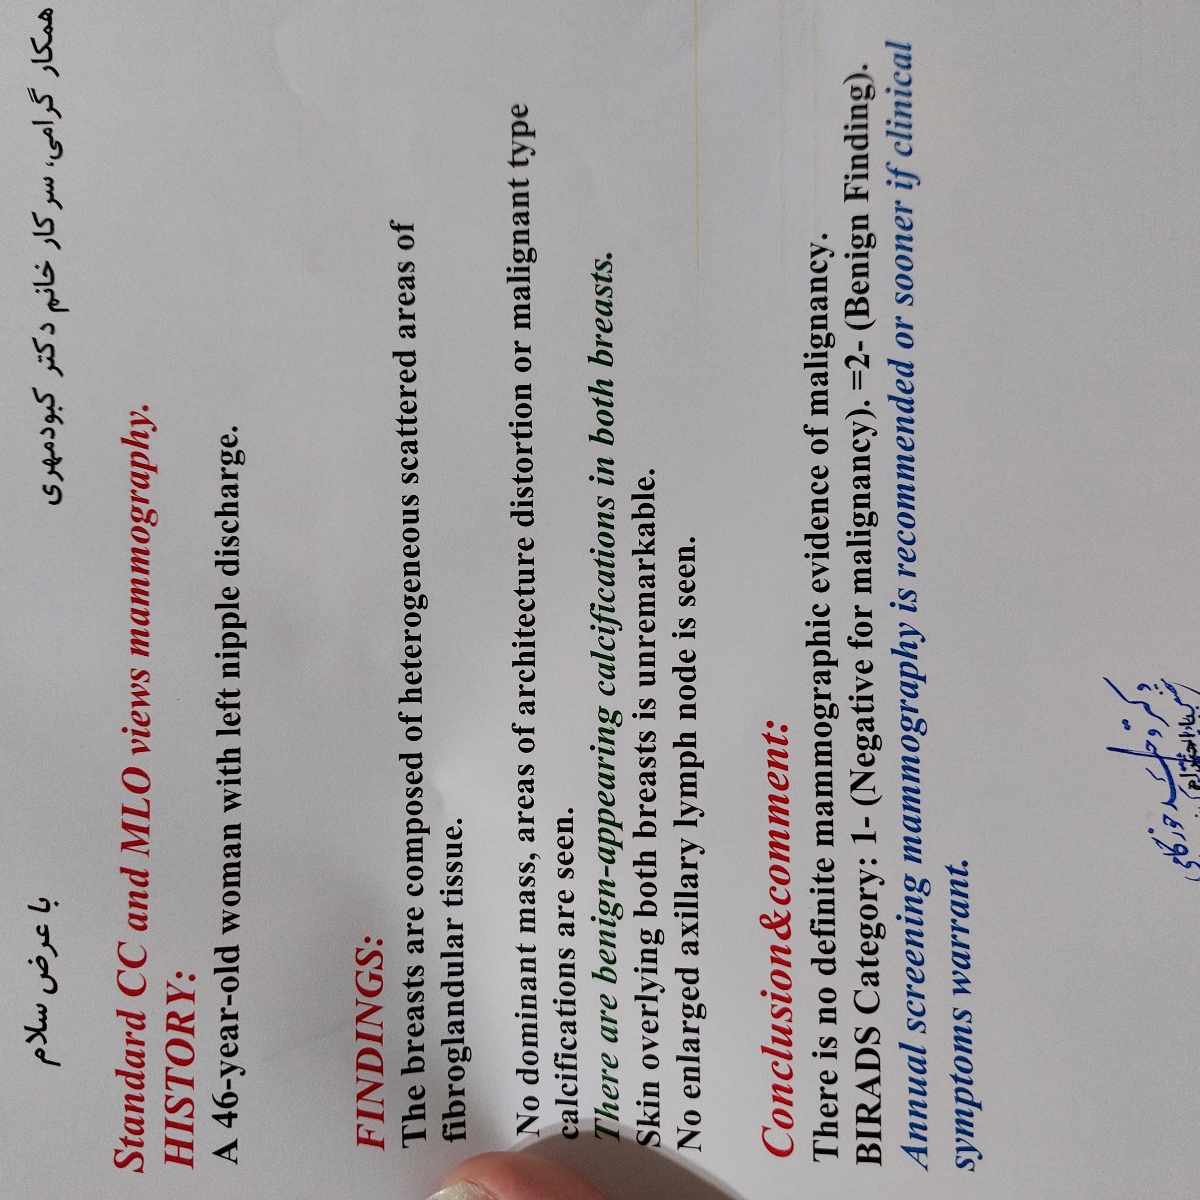 همکار گرامی، سرکار خانم دکتر کبودمهری
با عرض سلام
Standard CC and MLO views mammography.
HISTORY:
A 46-year-old woman with left nipple discharge.
FINDINGS:
The breasts are composed of heterogeneous scattered areas of
fibroglandular tissue.
No dominant mass, areas of architecture distortion or malignant type
calcifications are seen.
There are benign-appearing calcifications in both breasts.
Skin overlying both breasts is unremarkable.
No enlarged axillary lymph node is seen.
Conclusion&comment:
There is no definite mammographic evidence of malignancy.
BIRADS Category: 1- (Negative for malignancy). =2- (Benign Finding).
Annual screening mammography is recommended or sooner if clinical
symptoms warrant.